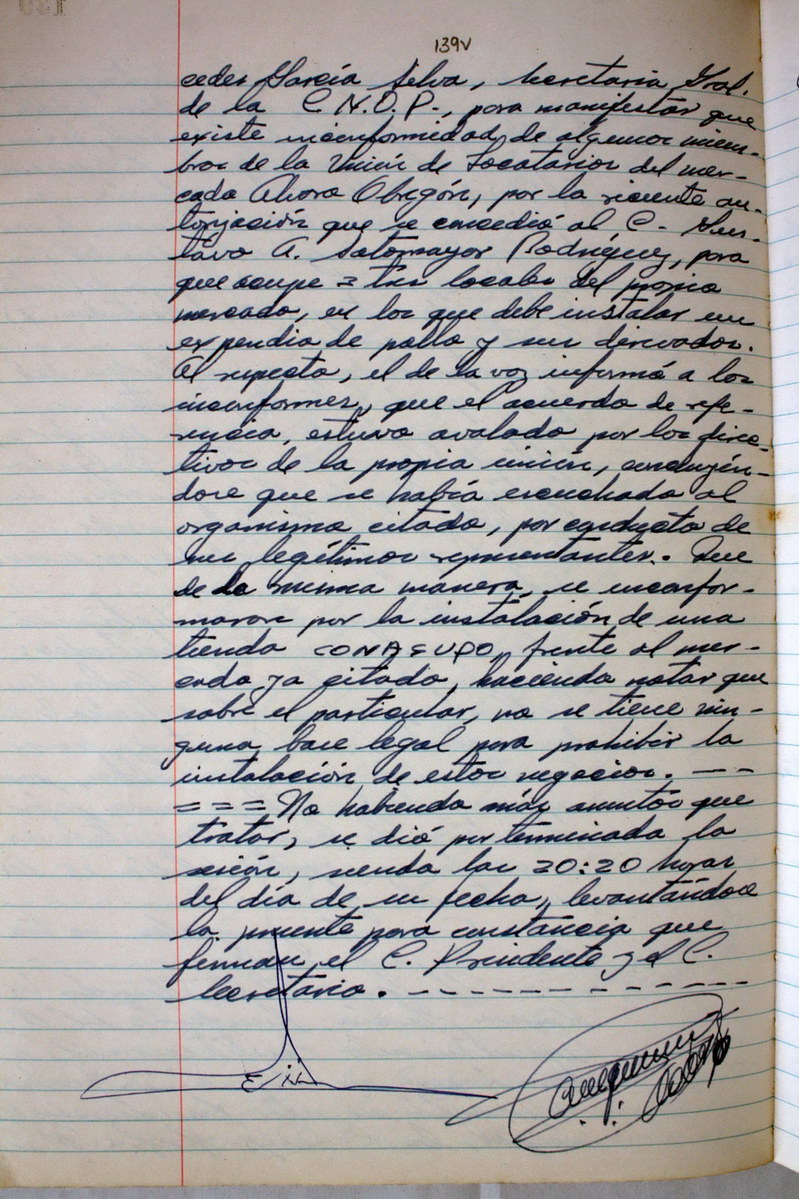 139v
cedes García Silva, Secretaria Gral.
de la C.N.O.P., para manifestar que
existe inconformidad, de algunos miem-
bros de la Unión de Locatarios del mer-
cado Alvaro Obregón, por la reciente au-
torización que se concedió al, C. Gus-
tavo A. Sotomayor Rodríguez, para
que ocupe 3 tres locales del propio
mercado, en los que debe instalar un
expendio de pollo y sus derivados.
Al respecto, el de la voz informó a los
inconformes, que el acuerdo de refe-
rencia, estuvo avalado por los direc-
tivos de la propia unión,
dose que se había escuchado al
organismo citado, por conducto de
sus legítimos representantes. Que
de la misma manera, se inconfor-
maron por la instalación de una
tienda CONASUPO, frente al mer-
cado ya citado, haciendo notar que
sobre el particular, no se tiene nin-
guna base legal para prohibir la
instalación de estos negocios. - - -
= = = No habiendo más asuntos que
tratar, se dió por terminada la
sesión, siendo las 20:20 horas
del día de su fecha, levantándose
la presente para constancia que
firman el C. Presidente y el C.
Secretario. - - - - - - - - - -